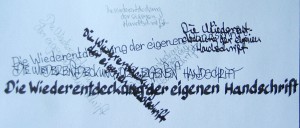 Wiederentdeckung
der eigenen
Handschrift
Die Wiederent-
deckung der eigenen
Handschrift
Die Wiederentdeckung der eigenen
Handschrift
Die Wiederentdeckung der eigenen Handschrift
DIE WIEDERENTDECKUNG DER EIGENEN HANDSCHRIFT
Die Wiederentdeckung der eigenen Handschrift